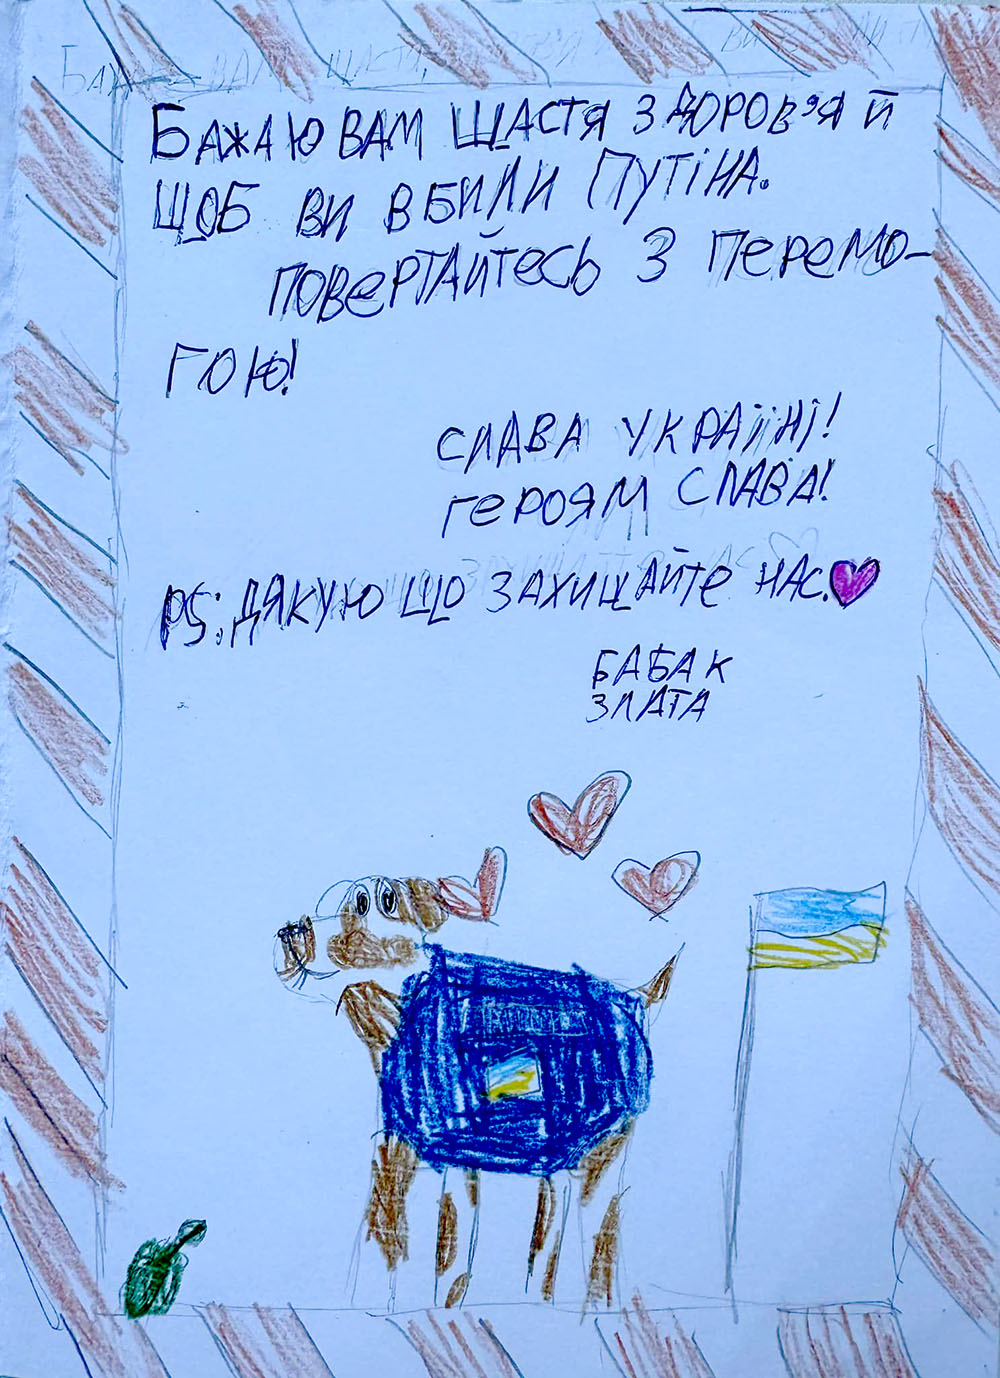 БАЖАЮ ВАМ ЩАСТЯ ЗДОРОВ'Я Й
ЩОБ ВИ ВБИЛИ ПУТІНА.
ПОВЕРТАЙТЕСЬ З ПЕРЕМО-
ГОЮ!
СЛАВА УКРАЇНІ!
ГЕРОЯМ СЛАВА!
PS: ДЯКУЮ ЩО ЗАХИЩАЙТЕ НАС.
БАБАК
ЗЛАТА